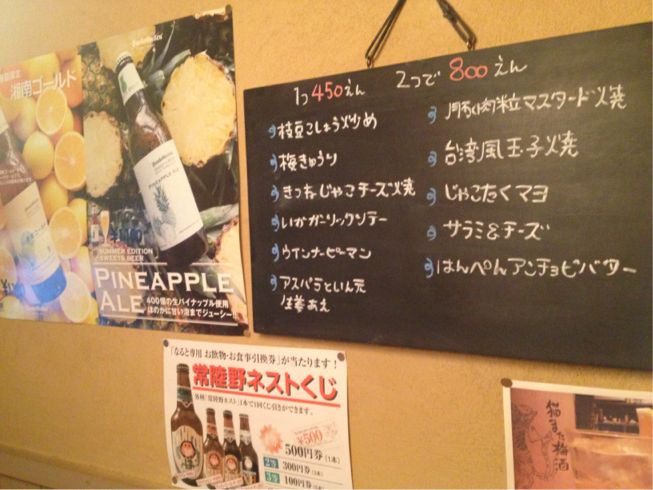 湘南ゴールド
SUMMER EDITION
SWEETS BEER
PINEAPPLE
ALE
400個の生パイナップル使用
ほのかに甘い泡までジューシー!!
PINEAPPLE ALE
1つ450えん 2つで800えん
枝豆こしょう炒め
梅きゅうり
じゃこチーズ焼
いかガーリックソテー
ウインナーピーマン
アスパラといん元
生姜あえ
粒マスタード焼
台湾風玉子焼
じゃこたくマヨ
サラミ&チーズ
はんぺんアンチョビバター
「なると専用 お飲物・お食事引換券」が当たります!
常陸野ネストくじ
各種「常陸野ネスト」1本で1回くじ引きができます。
¥500
500円券
300円券
100円券
猫また梅酒